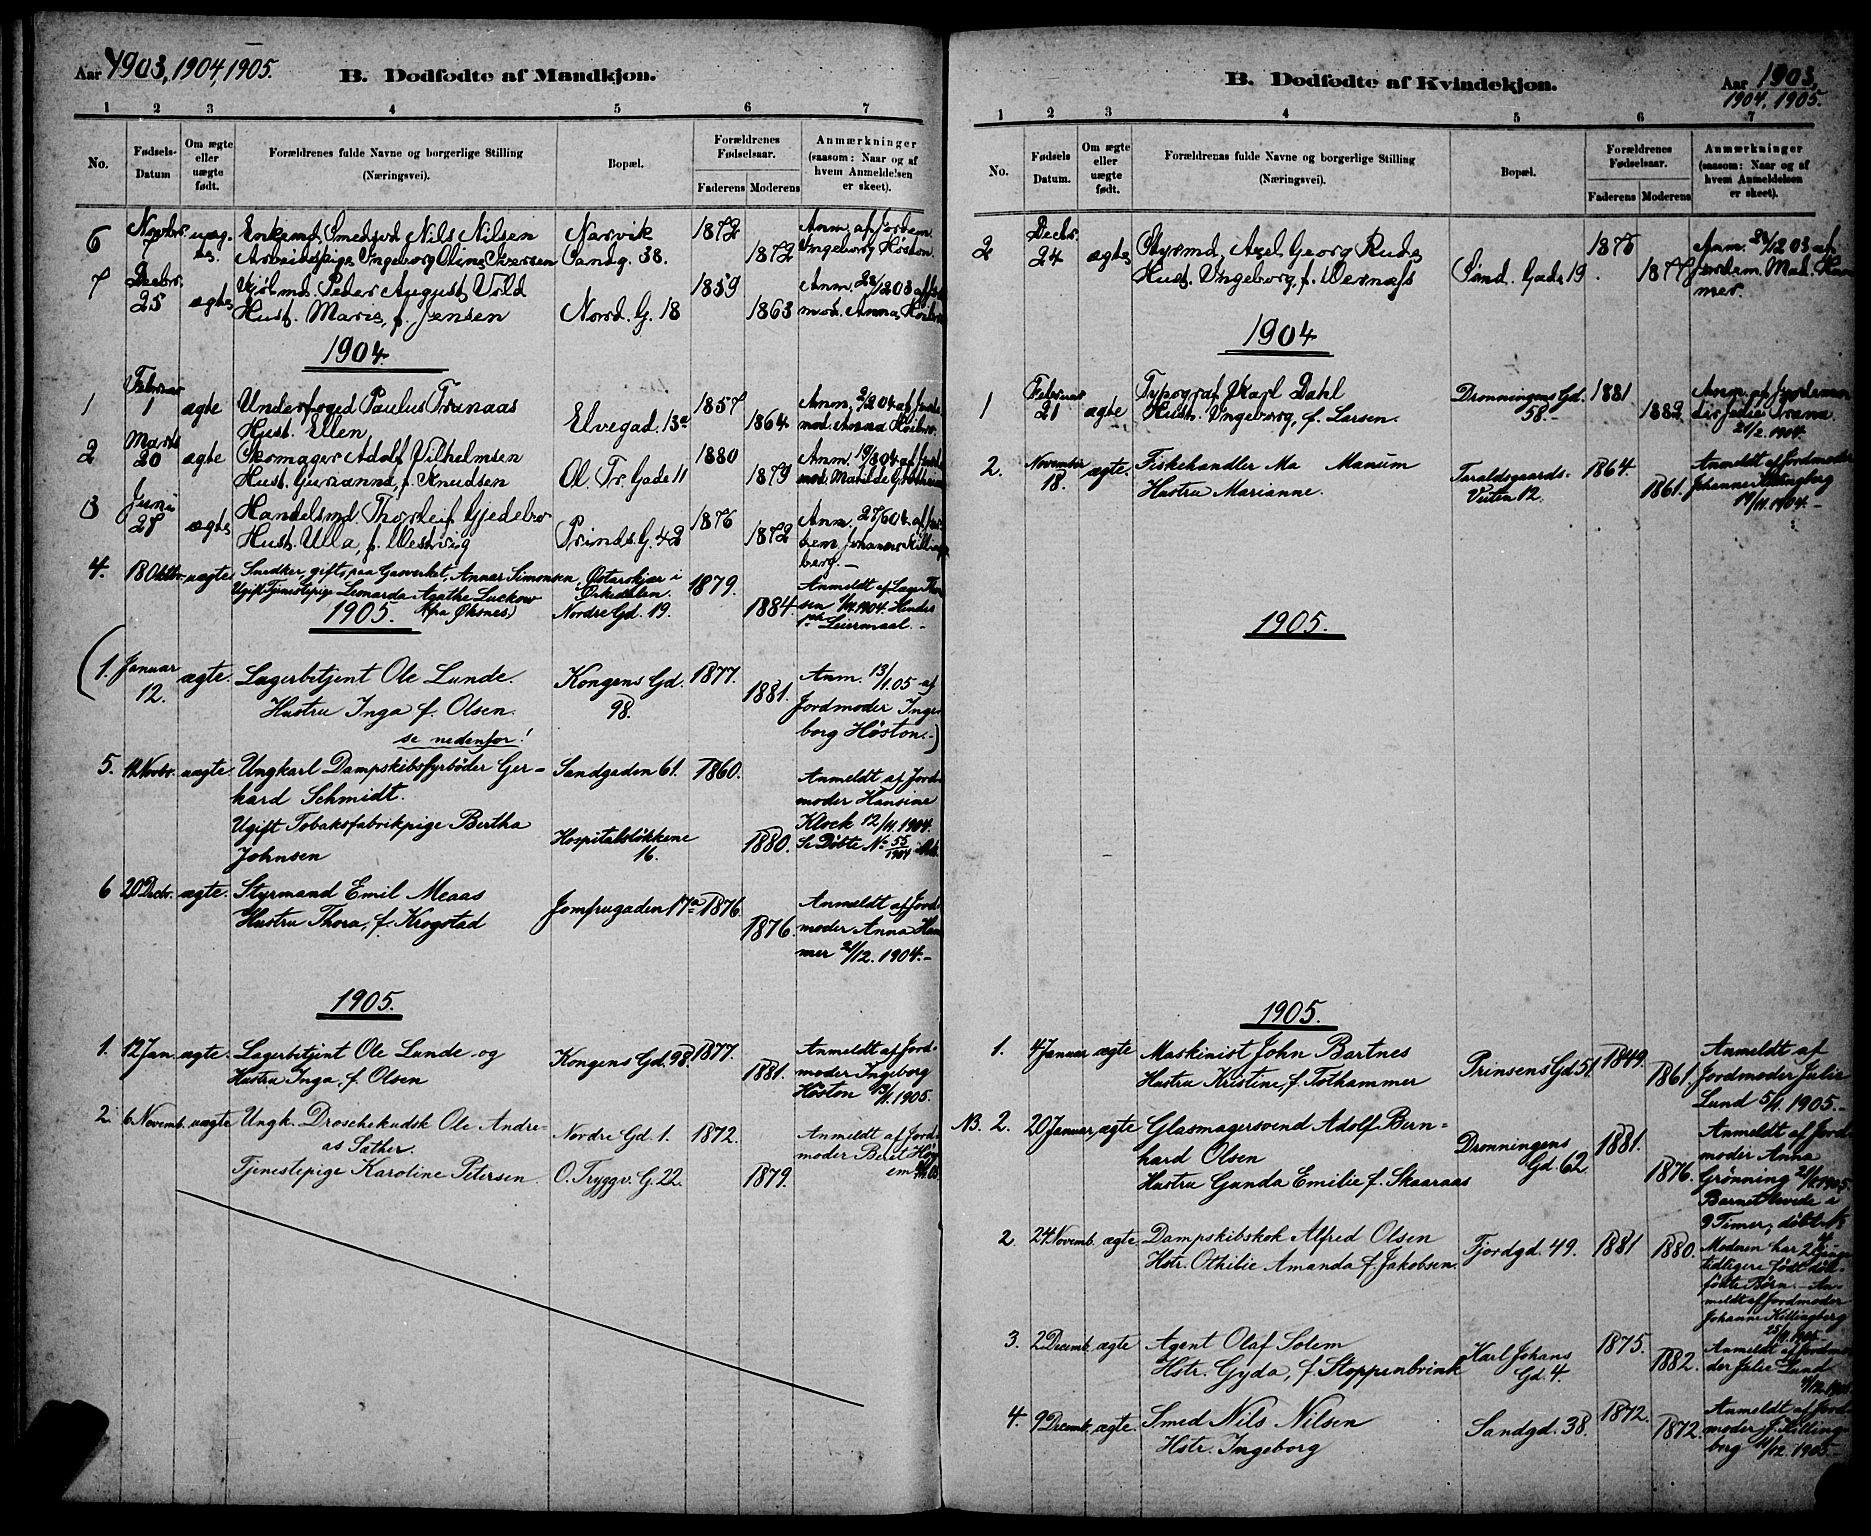 Aar 1903, 1904, 1905.
B. Dødfødte af Mandkjøn.
1 2 3 4 5 6 7
No.
Fødsels-
Datum
Om ægte
eller
uægte
født.
Forældrenes fulde Navne og borgerlige Stilling
(Næringsvei).
Bopæl.
Forældrenes
Fødselsaar.
Faderens Moderens
Anmærkninger
(saasom: Naar og af
hvem Anmeldelsen
er skeet).
6 Novbr. uæg- Enkemd. Smedsvd. Nils Nilsen Narvik 1872 Anm. af Jordem.
Arbeidspige Ingeborg Oline Iversen Sandg. 38. 1872 Ingeborg Høston.
7 Decbr. Peder August 1859 Anm.
25 ægte Hust. Marie, f. Jensen Nord. G. 18 1863 mod. Anna
1904.
1 Februar
1 ægte Underfoged Paulus Tranaas Elvegad. 13a 1857 Anm. 2/2 04 af
Hust. Ellen 1864 mod. Anna
2 Marts
20 ægte Skomager Adolf Vilhelmsen Ol. Tr. Gade 11 1880 Anm.
Hust. f. Knudsen 1879 mod. Matilde
3 Juni Handelsmd. Thorleif Gjedebo 1876 Anm. 27/6 04. af
27 ægte Hust. Ulla, f. Westvig Prinds. G. 42 1872 dem. Johanne Killing-
berg. —
4. 18 Oktbr. uægte Snedker, gift, paa Gasverket, Annar Simonsen, 1879. Anmeldt af
Ugift Tjenestepige Leonarda Agathe Luckow Orkedalen.
(fra Øksnes) Nordre Gd. 19. 1884. 1904. Hendes
1905. Leiermaal. -
(1. Januar
12. ægte. Lagerbetjent Ole Lunde. Kongens Gd. 1877. Anm. 13/1.05 af
Hustru Inga f. Olsen. 98. 1881. Jordmoder Inge-
se nedenfor! borg Høston.-)
5. 12 Novbr. uægte. Ungkarl Dampskibsfyrbøder Ger- Sandgaden 61. 1860. Anmeldt af Jord-
hard Schmidt. moder Hansine
Ugift Tobaksfabrikpige Bertha Hospitalsløkkene Klock 12/11. 1904.
Johnsen 16. 1880. Se Døbte No 55/1904
6 20 Decbr. ægte. Styrmand Emil Meaas Jomfrugaden 17a 1876. Anmeldt af Jord-
Hustru Thora, f. Krogstad 1876. moder Anna Ham-
mer 21/12. 1904.-
1905.
1. 12 Jan. ægte. Lagerbetjent Ole Lunde og Kongens Gd. 98. 1877. Anmeldt af Jord-
Hustru Inga, f. Olsen 1881. moder Ingeborg
Høston 13/1. 1905.
2. 6 Novemb. uægte Ungk. Droschekudsk Ole Andre- Nordre Gd. 1. 1872. Anmeldt af Jord-
as Sather. moder Beret
Tjenestepige Karoline Petersen. O. Tryggv. G. 22. 1879.
B. Dødfødte af Kvindekjøn.
Aar 1903,
1904, 1905.
1 2 3 4 5 6 7
No.
Fødsels
Datum.
Om ægte
eller
uægte
født.
Forældrenes fulde Navne og borgerlige Stilling
(Næringsvei).
Bopæl.
Forældrenes
Fødselsaar.
Faderens Moderens
Anmærkninger
(saasom: Naar og af
hvem Anmeldelsen
er skeet).
2 Decbr.
24 ægte Styrmd. Axel Georg Rude 1876
Hust. Ingeborg, f. Sand. Gade 19 Jordem. Mad. Ham-
mer.
1904
1 Februar
21 ægte Typograf Karl Dahl Dronningens Gd. 1881 Anm. af Jordemo-
Hust. Ingeborg, f. Larsen. 58. 1882 der Julie
21/2. 1904.
2. November
18. ægte. Fiskehandler Ma Manum Taraldsgaards- 1864. Anmeldt af Jordmoder
Hustru Marianne. Veiten 12. 1861. Johanne Killingberg
1904. -
1905.
1905.
1. 4 Januar ægte Maskinist John Bartnes Prinsens Gd. 51. 1849. Anmeldt af
Hustru Kristine, f. Tothammer 1861. Jordmoder Julie
Lund 5/1. 1905.-
NB. 2. 20 Januar, ægte Glasmagersvend Adolf Bern- Dronningens 1881. Anmeldt af Jord-
hard Olsen Gd. 62. moder Anna
Hustru Gunda Emilie f. Skaaraas 1876. Grønning 21/1. 1905.
Barnet levede i
9 Timer, døbt
2. 24 Novemb. ægte Dampskibskok Alfred Olsen Fjordgd. 49. 1881 1880. Moderen har 2 Gange
Hstr. Othilie Amanda f. Jakobsen. tidligere født død-
fødte Børn. - An-
meldt af Jordmoder
Johanne Killingberg
1905.
3. 2 Decemb. ægte Agent Olaf Solem Karl Johans 1875. Anmeldt af Jordmo-
Hstr. Gyda, f. Stoppenbrink Gd. 4. 1882. der Julie Lund
4. 9 Decemb. ægte. Smed Nils Nilsen Sandgd. 38. 1872. Anmeldt af Jord-
Hstr. Ingeborg 1872. moder J. Killing-
berg 1905.-